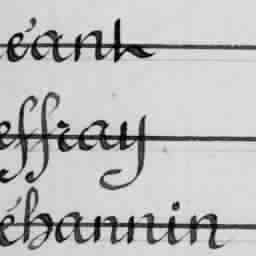 éank
effray
éhannin